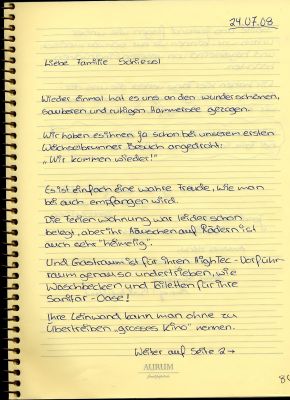 24.07.08
Liebe Familie Schiessl
Wieder einmal hat es uns an den wunderschönen,
sauberen und ruhigen Hammersee gezogen.
Wir haben es ihnen ja schon bei unserem ersten
Wechselbrunner Besuch angedroht:
„Wir kommen wieder!"
Es ist einfach eine wahre Freude, wie man
bei euch empfangen wird.
Die Ferienwohnung war leider schon
belegt, aber ihr Häuschen auf Rädern ist
auch sehr "heimelig".
Und Gastraum ist für ihren HighTec-Vorführ-
raum genauso untertrieben, wie
Waschbecken und Toiletten für ihre
Sanitär-Oase!
Ihre Leinwand kann man ohne zu
übertreiben „grosses Kino" nennen.
Weiter auf Seite 2 →
AURUM